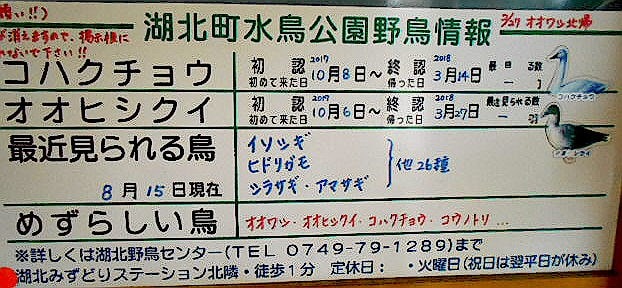 願い!!)
が消えますので、掲示板に
れないで下さい!!
湖北町水鳥公園野鳥情報
3/27 オオワシ北帰
コハクチョウ 初認 初めて来た日 2017 10月8日〜 終認 帰った日 2018 3月14日 一
コハクチョウ
オオヒシクイ 初認 初めて来た日 2017 10月6日〜 終認 帰った日 2018 3月27日 最近見られる数 一 羽
最近見られる鳥
8月15日現在
イソシギ
ヒドリガモ
シラサギ・アマサギ
他26種
めずらしい鳥 オオワシ・オオヒシクイ・コハクチョウ・コウノトリ...
※詳しくは湖北野鳥センター(TEL 0749-79-1289)まで
湖北みずどりステーション北隣・徒歩1分 定休日: ・火曜日(祝日は翌平日が休み)